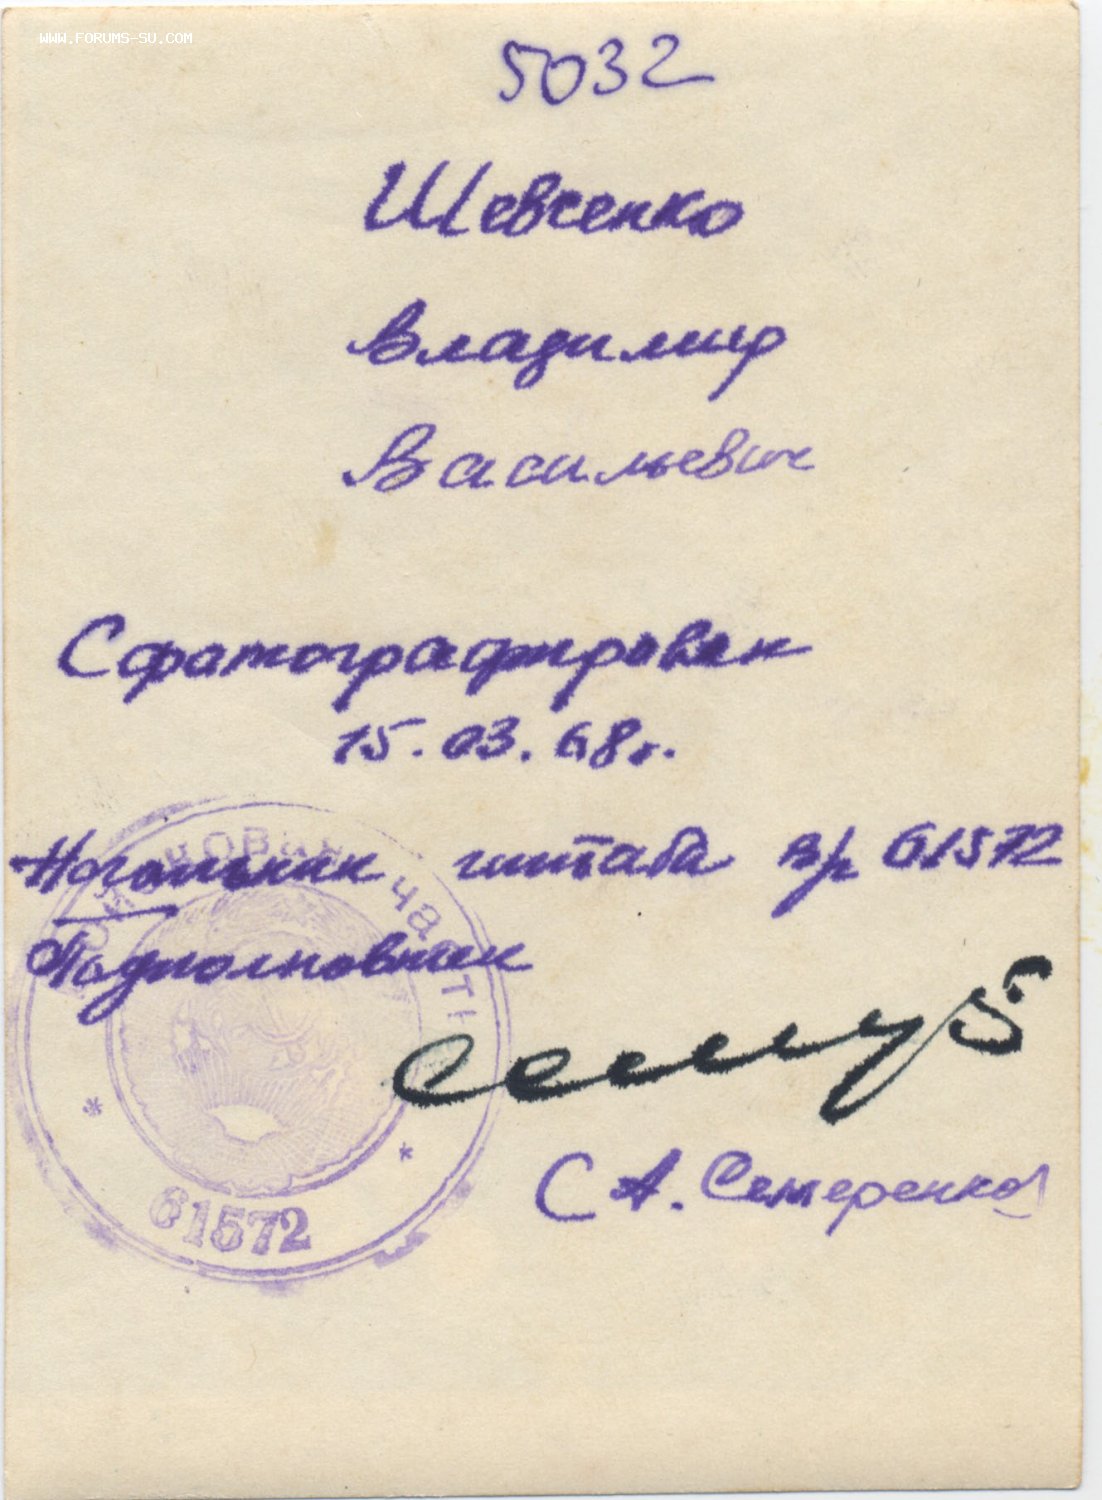 WWW.FORUMS-SU.COM
5032
Шевченко
Владимир
Васильевич
Сфотографирован
15.03.68г.
Начальник штаба в/ч 61572
Подполковник
С А. Семеренко
61572